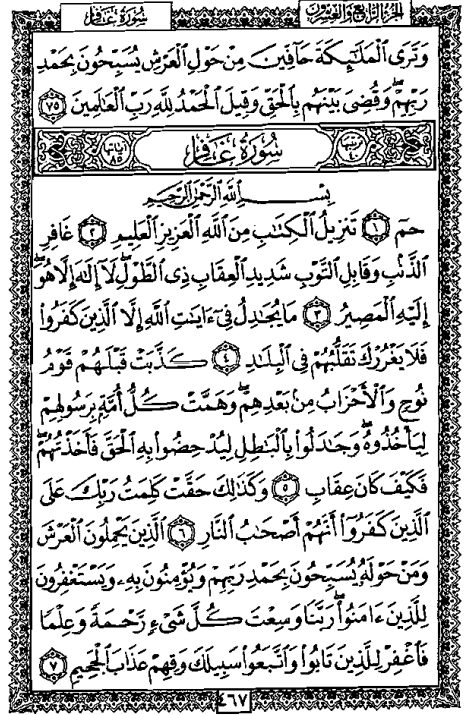 سُورَةُ غَافِر
الجزء الرابع والعشرون
وَتَرَى ٱلْمَلَٰٓئِكَةَ حَآفِّينَ مِنْ حَوْلِ ٱلْعَرْشِ يُسَبِّحُونَ بِحَمْدِ
رَبِّهِمْ ۖ وَقُضِىَ بَيْنَهُم بِٱلْحَقِّ وَقِيلَ ٱلْحَمْدُ لِلَّهِ رَبِّ ٱلْعَٰلَمِينَ ٧٥
ترتيبها ٤٠ سُورَةُ غَافِر آياتها ٨٥
بِسْمِ ٱللَّهِ ٱلرَّحْمَٰنِ ٱلرَّحِيمِ
حمٓ ١ تَنزِيلُ ٱلْكِتَٰبِ مِنَ ٱللَّهِ ٱلْعَزِيزِ ٱلْعَلِيمِ ٢ غَافِرِ
ٱلذَّنۢبِ وَقَابِلِ ٱلتَّوْبِ شَدِيدِ ٱلْعِقَابِ ذِى ٱلطَّوْلِ ۖ لَآ إِلَٰهَ إِلَّا هُوَ ۖ
إِلَيْهِ ٱلْمَصِيرُ ٣ مَا يُجَٰدِلُ فِىٓ ءَايَٰتِ ٱللَّهِ إِلَّا ٱلَّذِينَ كَفَرُوا۟
فَلَا يَغْرُرْكَ تَقَلُّبُهُمْ فِى ٱلْبِلَٰدِ ٤ كَذَّبَتْ قَبْلَهُمْ قَوْمُ
نُوحٍ وَٱلْأَحْزَابُ مِنۢ بَعْدِهِمْ ۖ وَهَمَّتْ كُلُّ أُمَّةٍۭ بِرَسُولِهِمْ
لِيَأْخُذُوهُ ۖ وَجَٰدَلُوا۟ بِٱلْبَٰطِلِ لِيُدْحِضُوا۟ بِهِ ٱلْحَقَّ فَأَخَذْتُهُمْ ۖ
فَكَيْفَ كَانَ عِقَابِ ٥ وَكَذَٰلِكَ حَقَّتْ كَلِمَتُ رَبِّكَ عَلَى
ٱلَّذِينَ كَفَرُوٓا۟ أَنَّهُمْ أَصْحَٰبُ ٱلنَّارِ ٦ ٱلَّذِينَ يَحْمِلُونَ ٱلْعَرْشَ
وَمَنْ حَوْلَهُۥ يُسَبِّحُونَ بِحَمْدِ رَبِّهِمْ وَيُؤْمِنُونَ بِهِۦ وَيَسْتَغْفِرُونَ
لِلَّذِينَ ءَامَنُوا۟ رَبَّنَا وَسِعْتَ كُلَّ شَىْءٍ رَّحْمَةً وَعِلْمًا
فَٱغْفِرْ لِلَّذِينَ تَابُوا۟ وَٱتَّبَعُوا۟ سَبِيلَكَ وَقِهِمْ عَذَابَ ٱلْجَحِيمِ ٧
٤٦٧